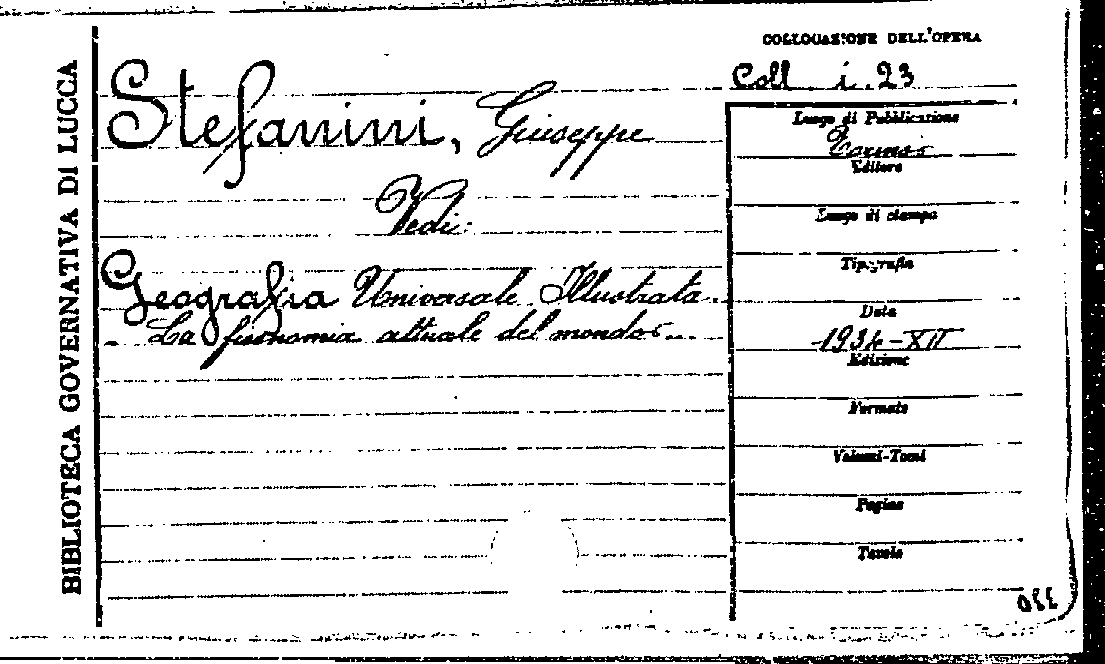 BIBLIOTECA GOVERNATIVA DI LUCCA
COLLOCAZIONE DELL'OPERA
Coll i. 23
Stefanini, Giuseppe
Vedi:
Geografia Universale Illustrata.
- La fisonomia attuale del mondo ...
Luogo di Pubblicazione
Torino
Editore
Luogo di stampa
Tipografia
Data
1934-XII
Edizione
Formato
Volumi-Tomi
Pagine
Tavole